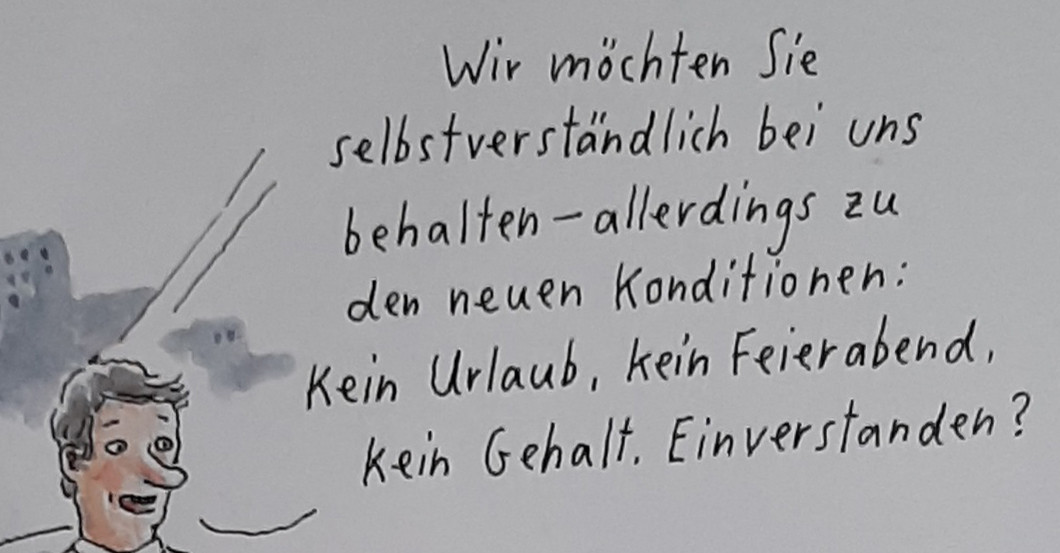 Wir möchten Sie
selbstverständlich bei uns
behalten – allerdings zu
den neuen Konditionen:
Kein Urlaub, kein Feierabend,
kein Gehalt. Einverstanden?